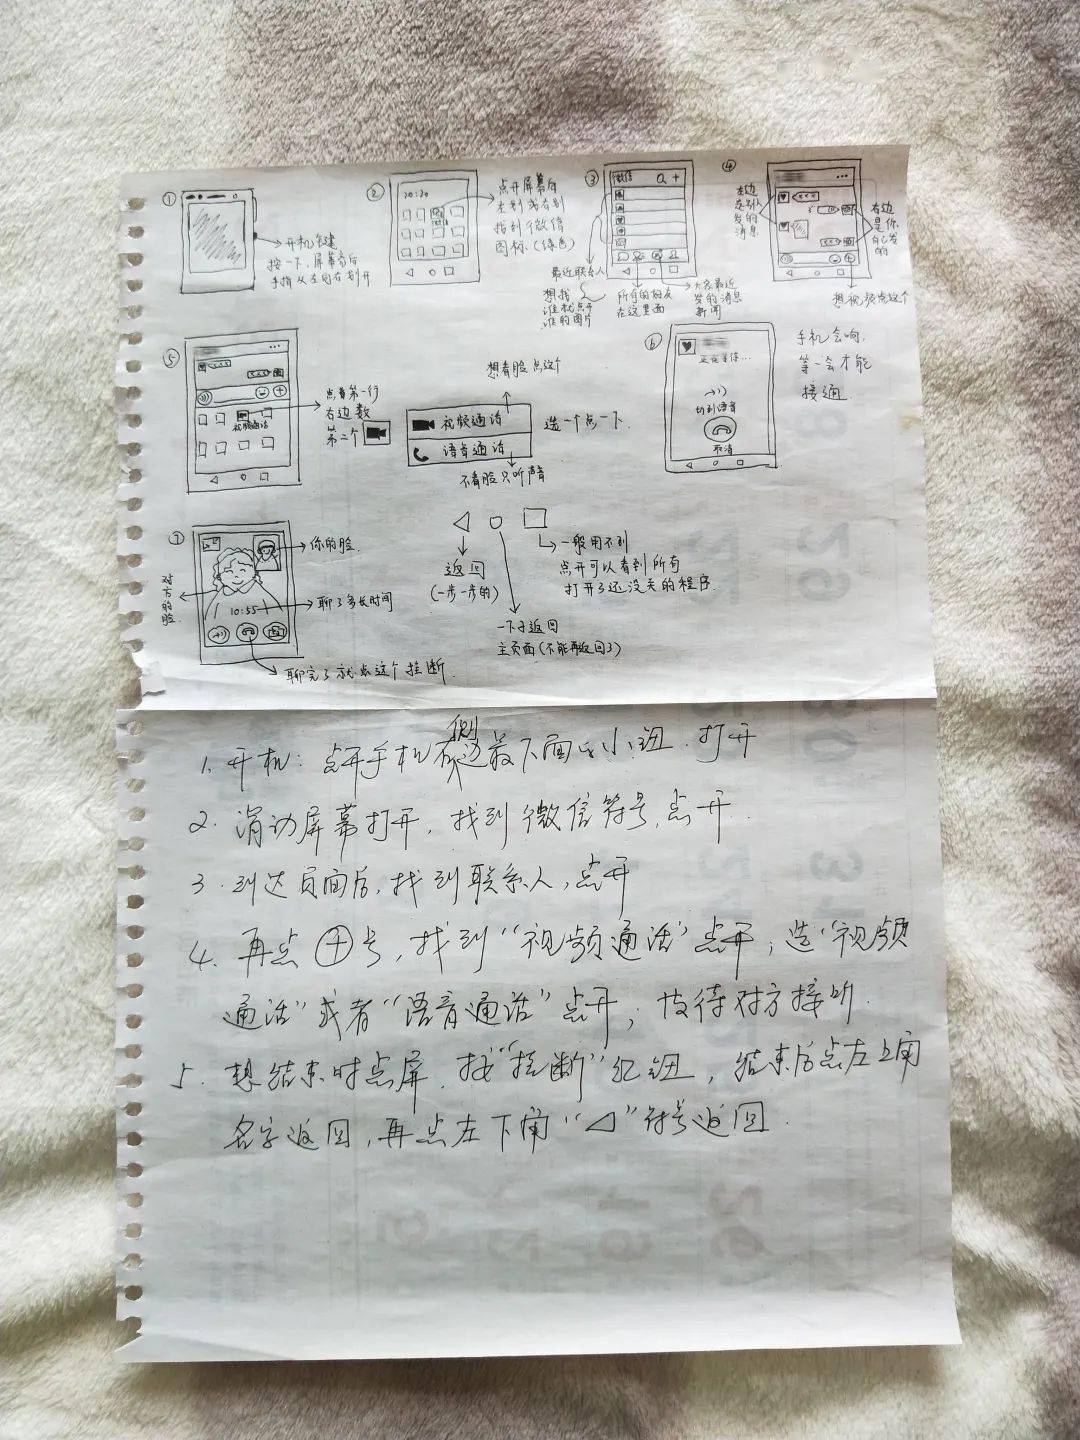 ①
开机键
按一下，屏幕亮后
手指从左向右划开
②
20:20
点开屏幕后
左划或右划
找到微信
图标（绿色）
③
微信
最近联系人
想找
谁就点开
谁的图片
所有的朋友
在这里面
大家最近
发的消息
新闻
④
左边
是别人
发的
消息
右边
是你
自己发
的
想视频点这个
⑤
视频通话
点着第一行
右边数
第二个
想看脸点这个
视频通话
语音通话
选一个点一下
不看脸只听声音
⑥
正在等待...
切到语音
取消
手机会响，
等一会才能
接通
⑦
你的脸
对方的脸
10:55
聊了多长时间
聊完了就点这个挂断
返回
(一步一步的)
一下子返回
主页面(不能再返回了)
一般用不到
点开可以看到所有
打开了还没关的程序
1. 开机：点开手机侧边最下面的小钮，打开
2. 滑动屏幕打开，找到微信符号，点开.
3. 到达页面后，找到联系人，点开
4. 再点⊕号，找到“视频通话”点开，选“视频
通话”或者“语音通话”点开，等待对方接听.
5. 想结束时点屏，找“挂断”红钮，结束后点左上角
名字返回，再点左下角“◁”符号返回.